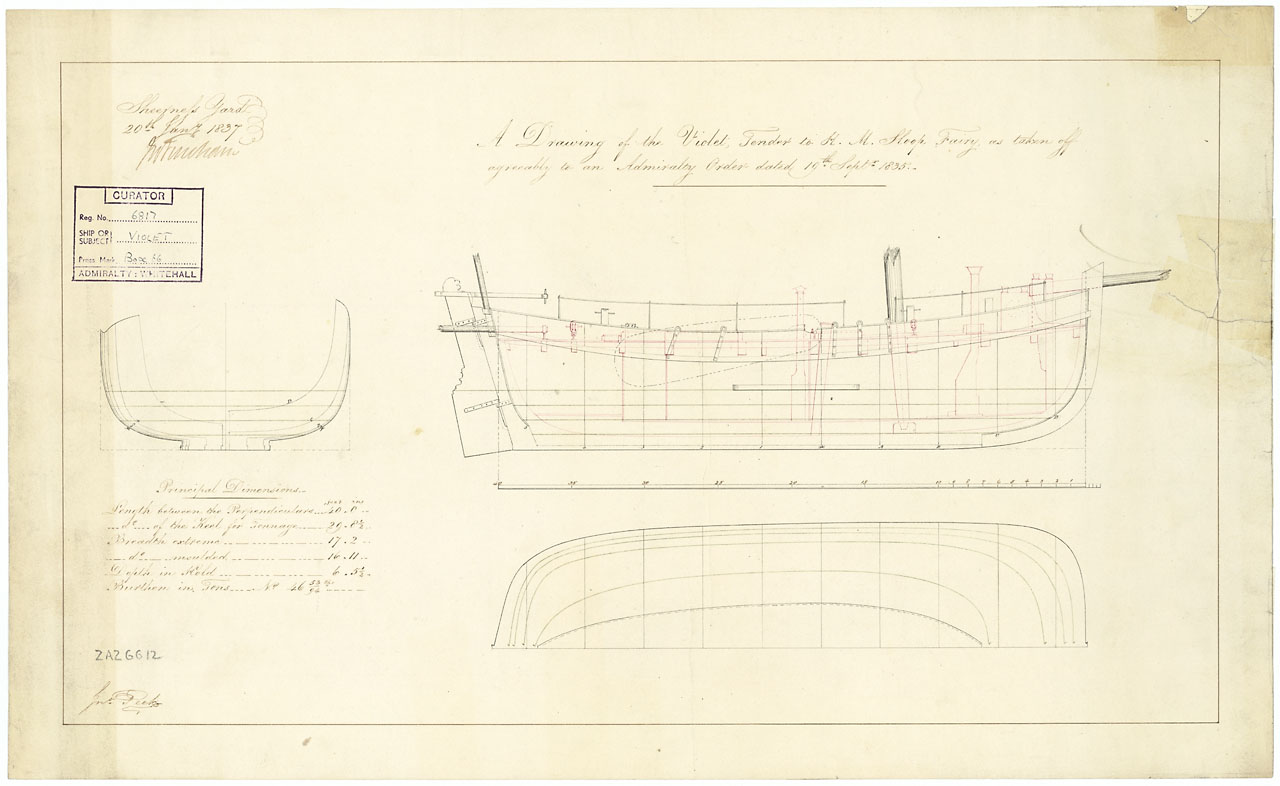 Sheerness Yard
20th Jany 1837
Jn Fincham
A Drawing of the Violet, Tender to H. M. Sloop Fairy, as taken off
agreeably to an Admiralty Order dated 19th Septr 1835.
CURATOR
Reg. No. 6817
SHIP OR SUBJECT VIOLET
Press Mark Box 66
ADMIRALTY: WHITEHALL
Principal Dimensions
Feet Ins
Length between the Perpendiculars 40 . 0
do of the Keel for Tonnage 29 . 8½
Breadth extreme 17 . 2
do moulded 16 . 11
Depth in Hold 6 . 5½
Burthen in Tons No 46
40 35 30 25 20 15 10 9 8 7 6 5 4 3 2 1
ZAZ6612
Jno Peek